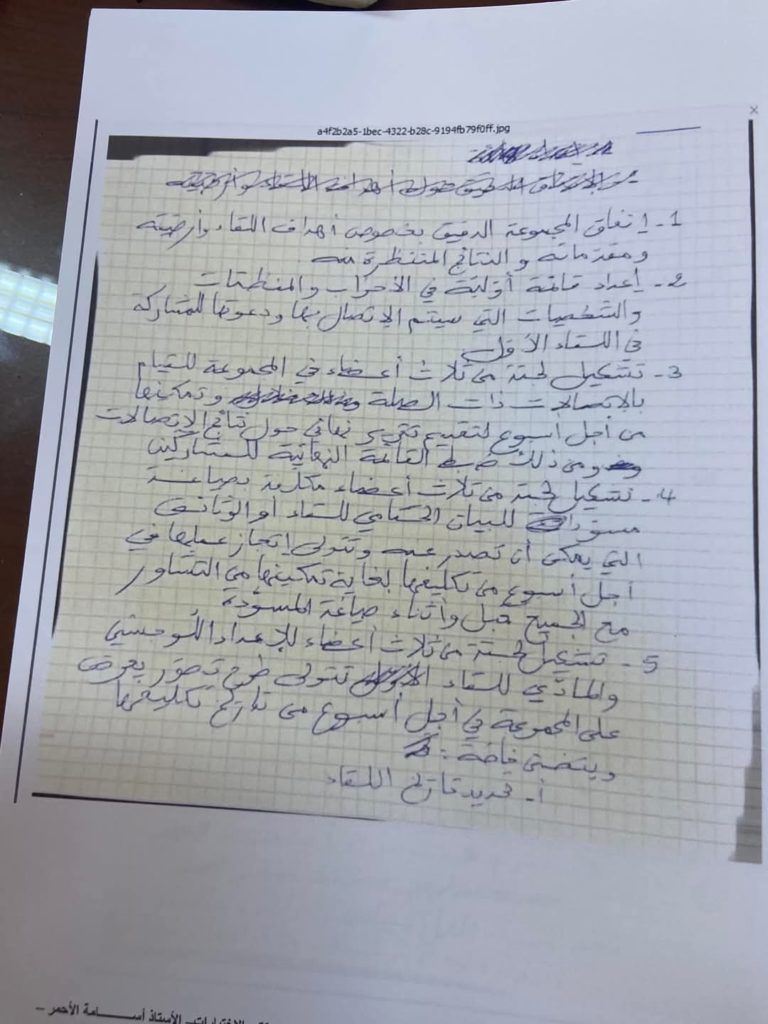 a4f2b2a5-1bec-4322-b28c-9194fb79f0ff.jpg
1- إتفاق المجموعة الدقيق بخصوص أهداف اللقاء وأرضيته
ومقدماته والنتائج المنتظرة منه
2- إعداد قائمة أولية في الأحزاب والمنظمات
والشخصيات التي سيتم الإتصال بها ودعوتها للمشاركة
في اللقاء الأول
3- تشكيل لجنة من ثلاث أعضاء في المجموعة للقيام
بالإتصالات ذات الصلة وتمكينها
من أجل أسبوع لتقديم تقرير نهائي حول نتائج الإتصالات
ومن ذلك ضبط القائمة النهائية للمشاركين
4- تشكيل لجنة من ثلاث أعضاء مكلفة بصياغة
مسودة للبيان الختامي للقاء أو الوثائق
التي يمكن أن تصدر عنه وتتولى إنجاز عملها في
أجل أسبوع من تكليفها لغاية تمكينها من التشاور
مع الجميع قبل وأثناء صياغة المسودة
5- تشكيل لجنة من ثلاث أعضاء للإعداد اللوجستي
والمادي للقاء تتولى طرح تصور يعرض
على المجموعة في أجل أسبوع من تاريخ تكليفها
ويتضمن خاصة:
أ- تحديد تاريخ اللقاء
الأستاذ أسامة الأحمر –